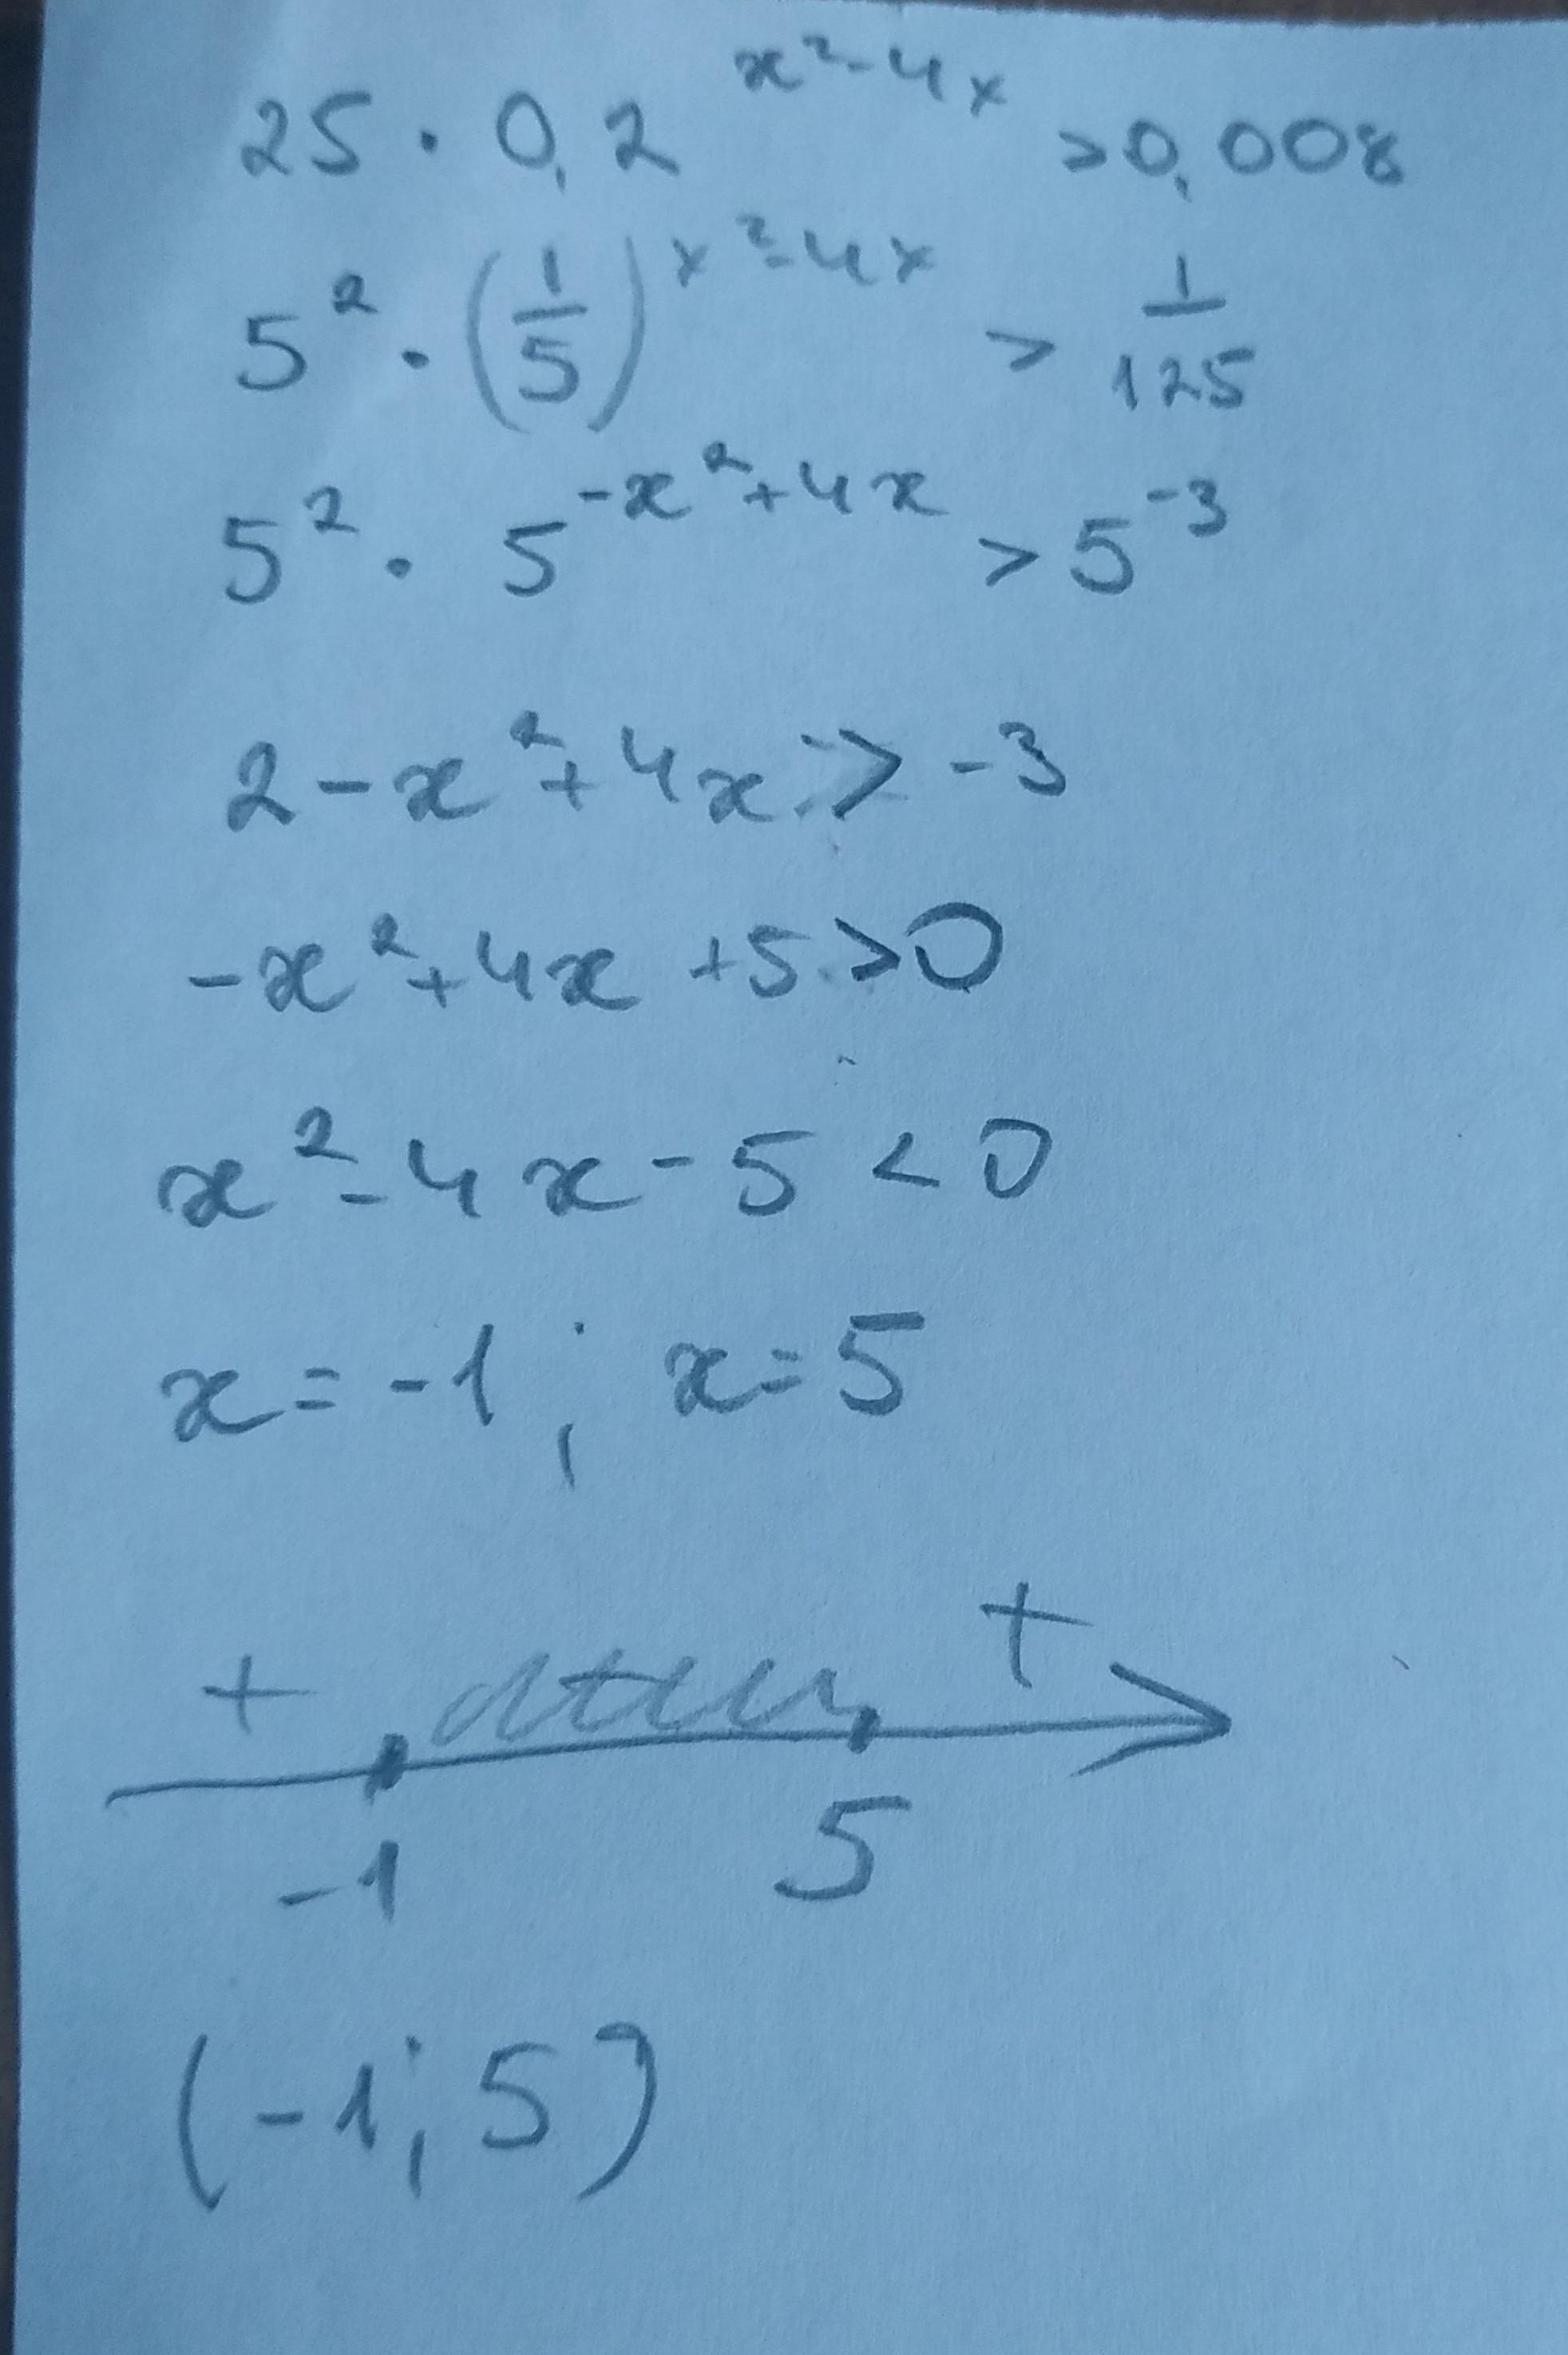 25 · 0,2^{x²-4x} > 0,008
5² · (1/5)^{x²-4x} > 1/125
5² · 5^{-x²+4x} > 5^{-3}
2 - x² + 4x > -3
-x² + 4x + 5 > 0
x² - 4x - 5 < 0
x = -1 ; x = 5
+ +
-1 5
(-1; 5)